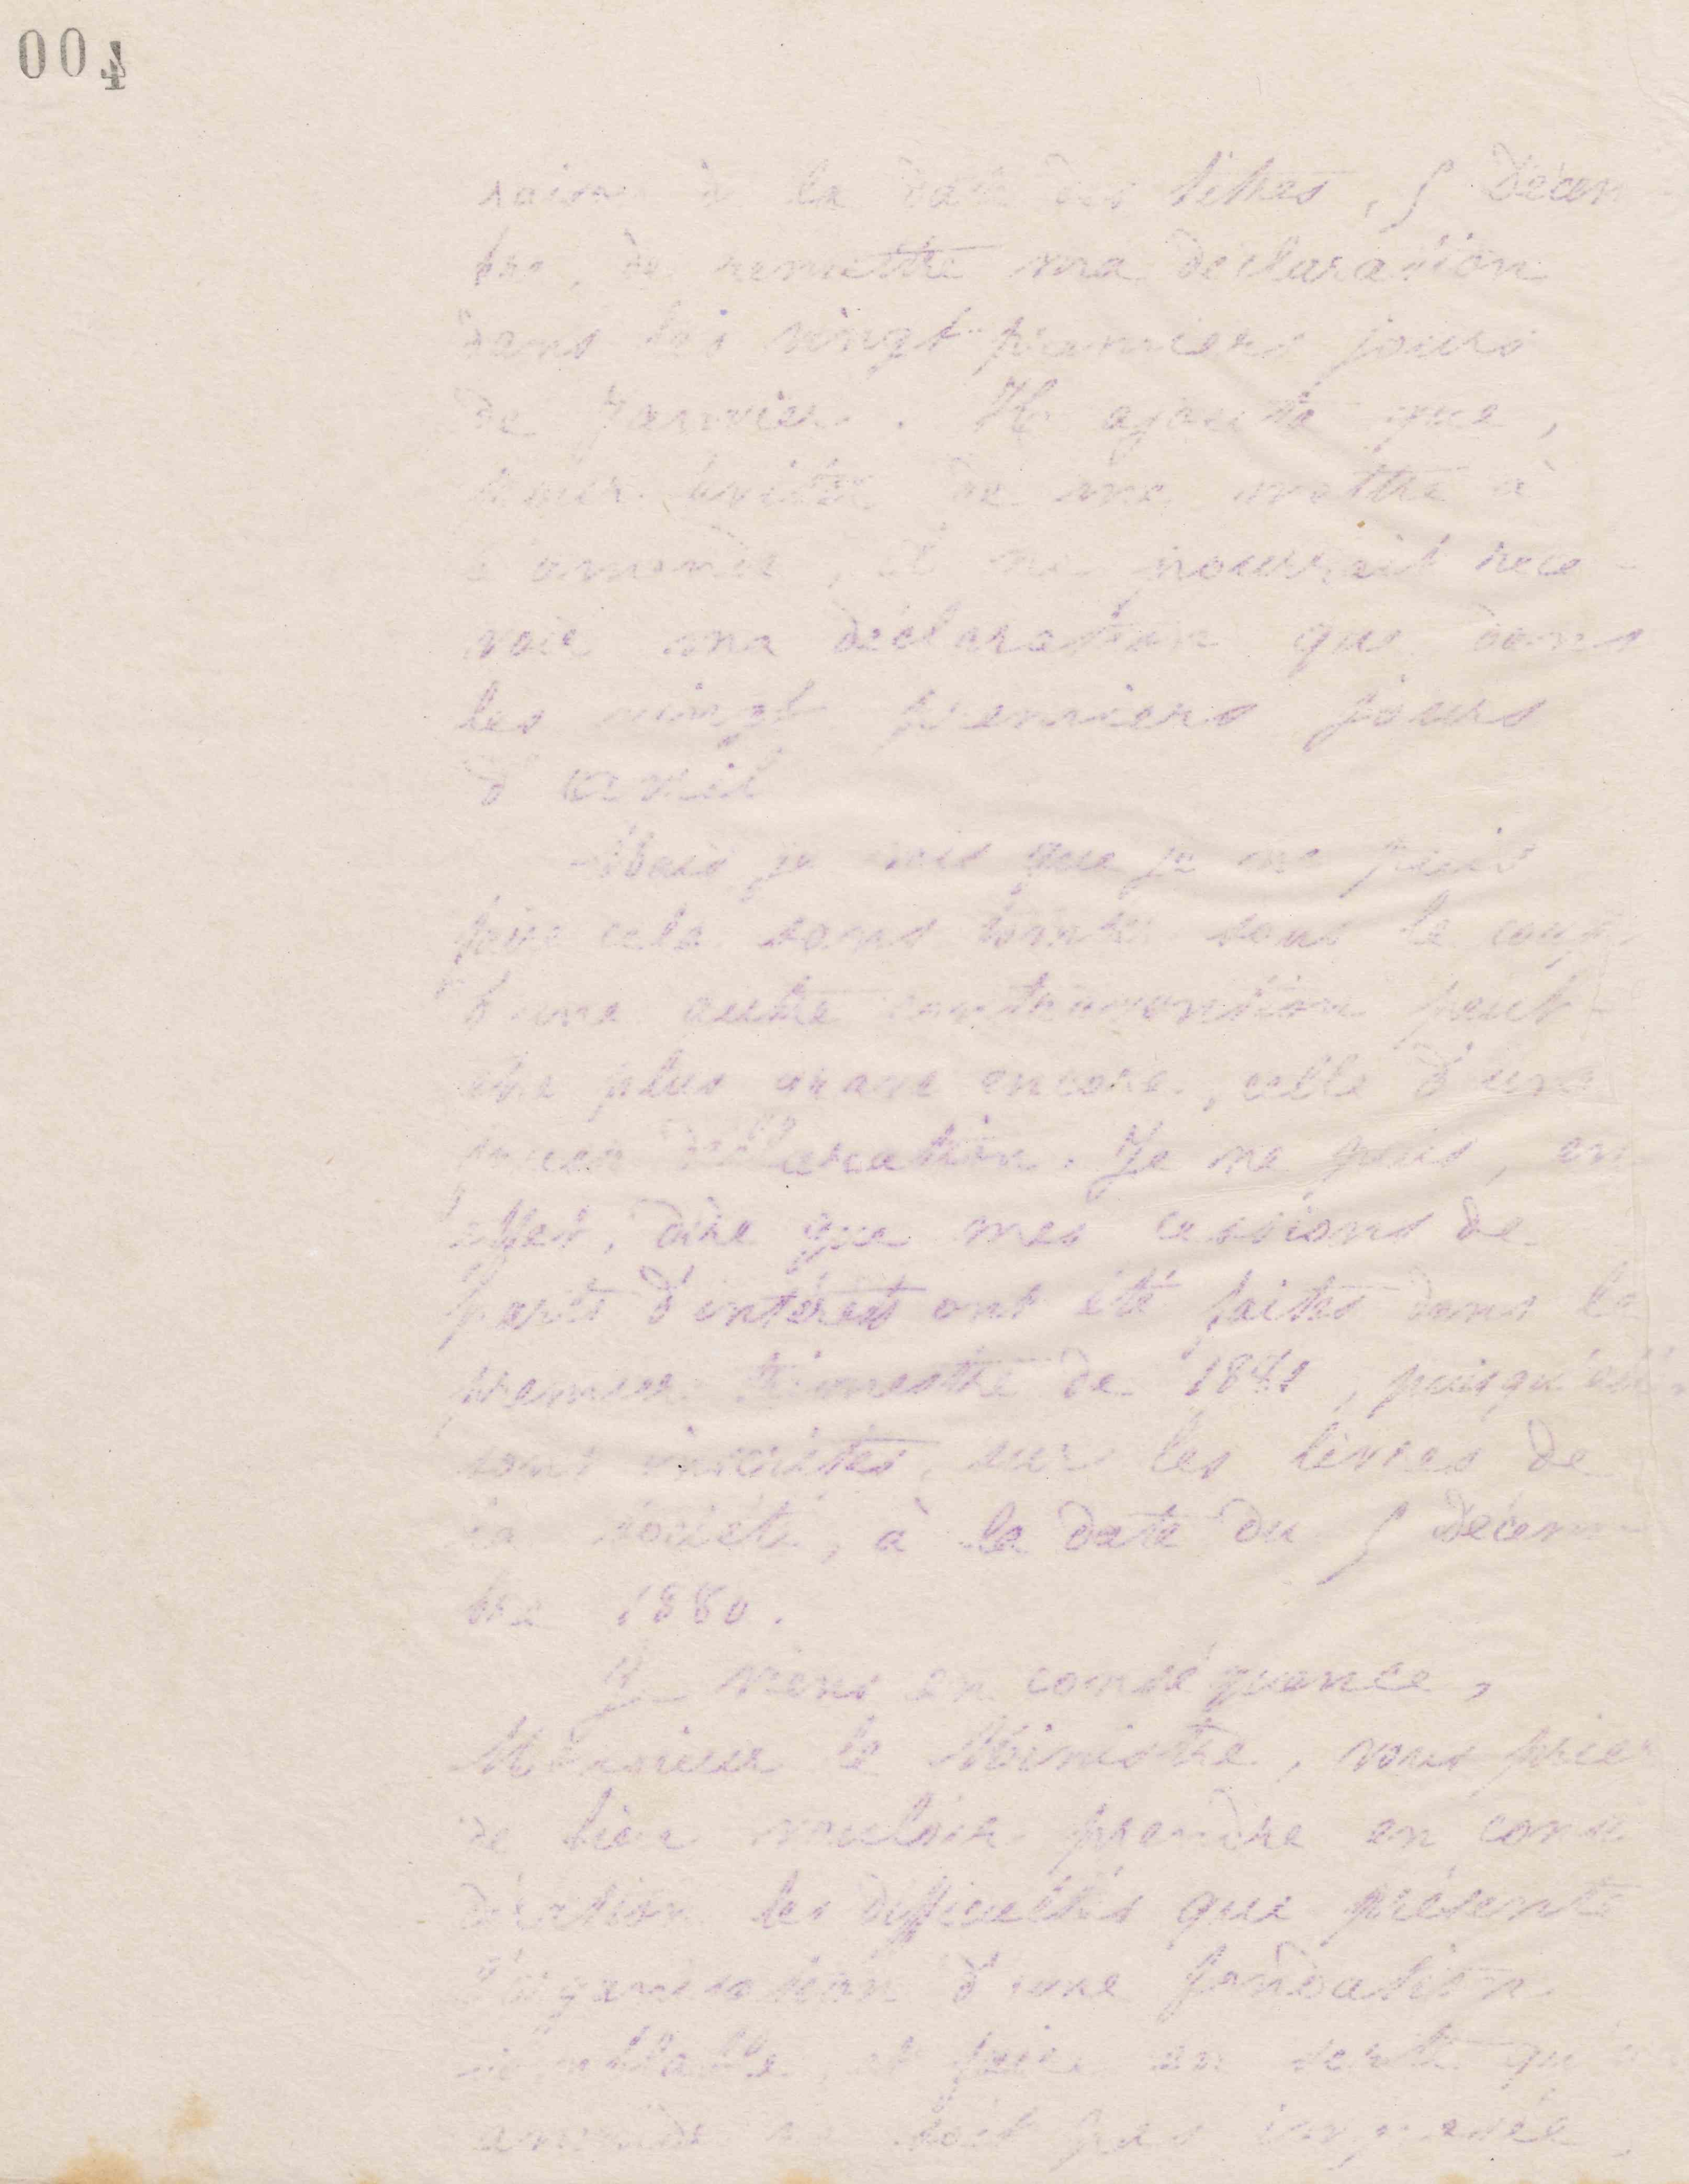 004
raison de la date des titres, 5 décem
bre, de remettre ma déclaration
dans les vingt premiers jours
de Janvier. Il ajouta que,
pour éviter de me mettre à
l'amende, il ne pourrait rece-
voir ma déclaration que dans
les vingt premiers jours
d'avril
Mais je vois que je ne puis
faire cela sans tomber sous le coup
d'une autre contravention peut-
être plus grave encore, celle d'une
fausse déclaration. Je ne puis, en
effet, dire que mes cessions de
parts d'intérêts ont été faites dans le
premier trimestre de 1881, puisqu'elles
sont inscrites, sur les livres de
la société, à la date du 5 Décem-
bre 1880.
Je viens en conséquence,
Monsieur le Ministre, vous prier
de bien vouloir prendre en consi
dération les difficultés que présente
l'organisation d'une fondation
semblable, et faire en sorte qu'
amende ne soit pas imposée,